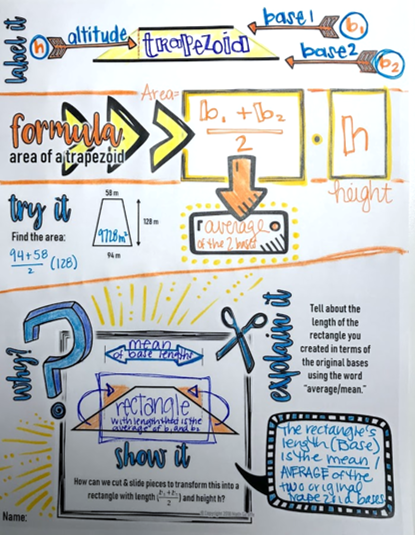 label it
h
altitude
trapezoid
base 1
b₁
base 2
b₂
Area=
formula
area of a trapezoid
b₁ + b₂
2
•
h
height
average
of the 2 bases
try it
Find the area:
94+58
2
(128)
58 m
9728m²
128 m
94 m
why?
?
mean
of base lengths
rectangle
with length that is the
average of b₁ and b₂
show it
How can we cut & slide pieces to transform this into a
rectangle with length (b₁+b₂/2) and height h?
explain it
Tell about the
length of the
rectangle you
created in terms of
the original bases
using the word
"average/mean."
The rectangle's
length (Base)
is the mean /
AVERAGE of the
two original
trapezoid bases
Name: